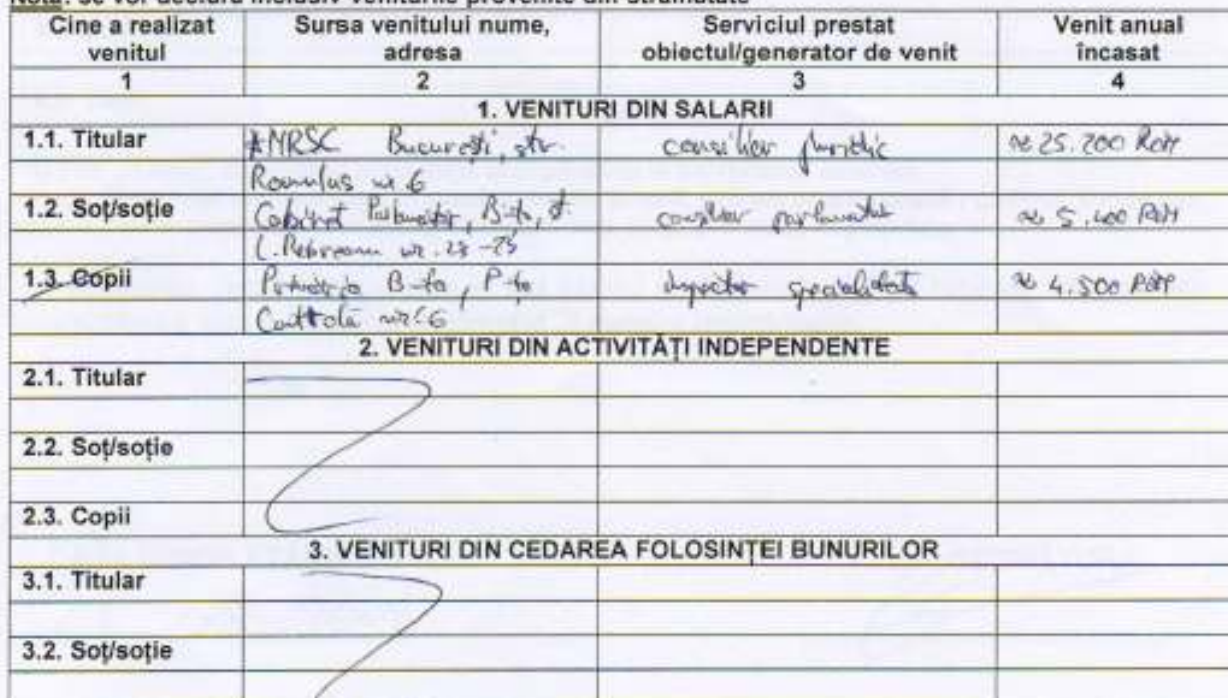 Notă: se vor declara inclusiv veniturile provenite din străinătate
Cine a realizat venitul Sursa venitului nume, adresa Serviciul prestat obiectul/generator de venit Venit anual încasat
1 2 3 4
1. VENITURI DIN SALARII
1.1. Titular ANRSC București, str. consilier juridic ≈ 25.200 RON
Romulus nr 6
1.2. Soț/soție Cabinet Parlamentar, B-ța, consilier parlamentar ≈ 5.400 RON
L. Rebreanu nr. 23-25
1.3. Copii Primăria B-ța, P-ța inspector specialitate ≈ 4.500 RON
Centrală nr. 6
2. VENITURI DIN ACTIVITĂȚI INDEPENDENTE
2.1. Titular
2.2. Soț/soție
2.3. Copii
3. VENITURI DIN CEDAREA FOLOSINȚEI BUNURILOR
3.1. Titular
3.2. Soț/soție